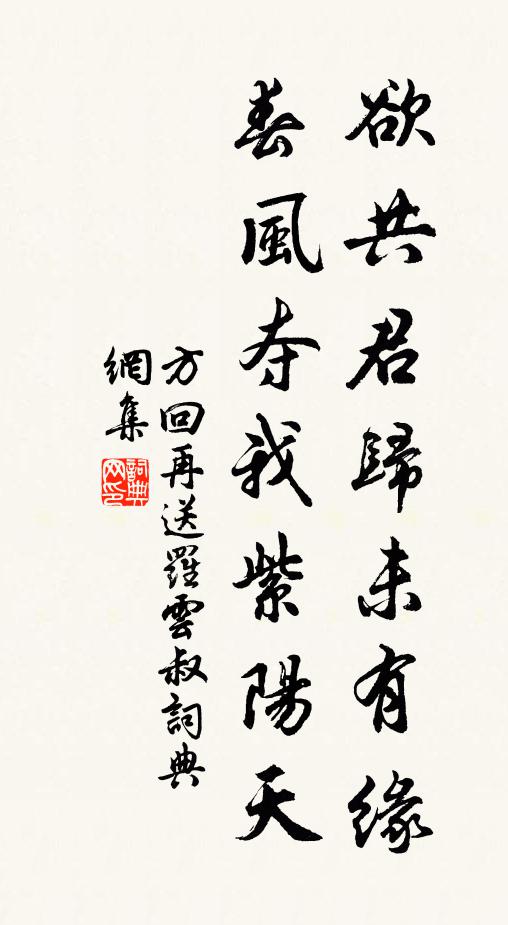 欲共君歸未有緣
春風夺我紫陽天
方回再送羅雲叔詞典
網集
詞典
网印